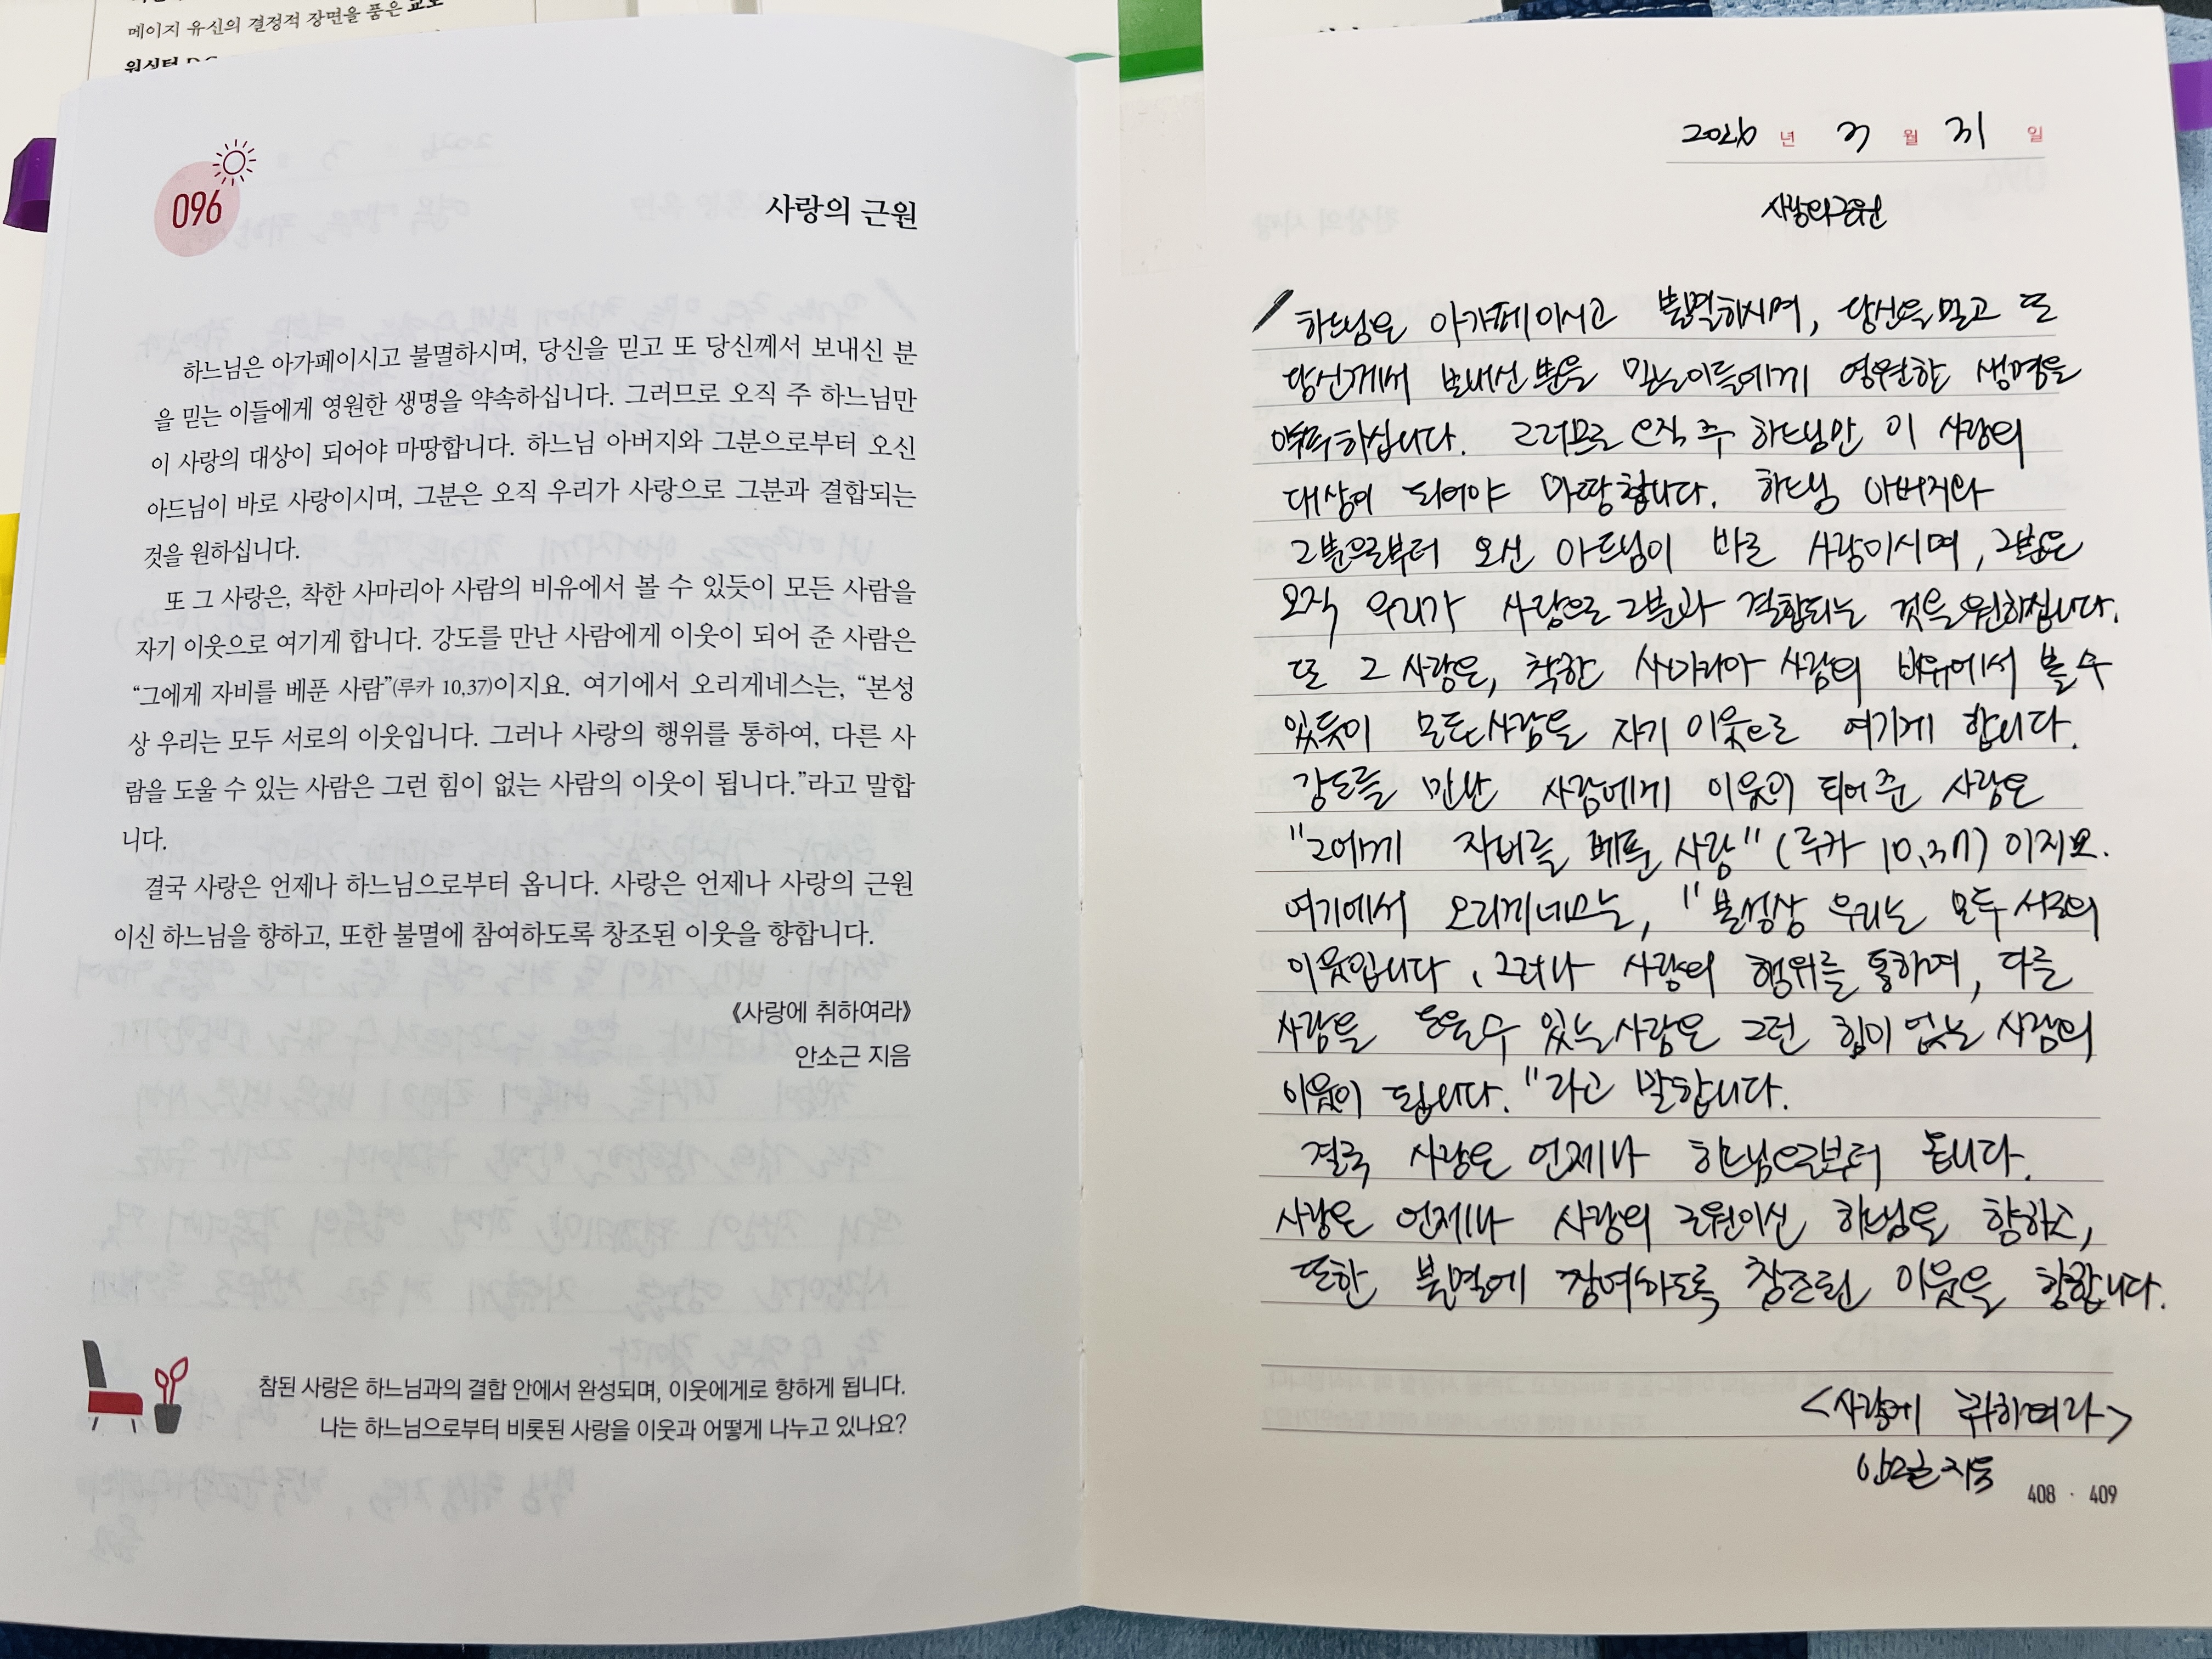 메이지 유신의 결정적 장면을 품은 교토
096
사랑의 근원
하느님은 아가페이시고 불멸하시며, 당신을 믿고 또 당신께서 보내신 분
을 믿는 이들에게 영원한 생명을 약속하십니다. 그러므로 오직 주 하느님만
이 사랑의 대상이 되어야 마땅합니다. 하느님 아버지와 그분으로부터 오신
아드님이 바로 사랑이시며, 그분은 오직 우리가 사랑으로 그분과 결합되는
것을 원하십니다.
또 그 사랑은, 착한 사마리아 사람의 비유에서 볼 수 있듯이 모든 사람을
자기 이웃으로 여기게 합니다. 강도를 만난 사람에게 이웃이 되어 준 사람은
“그에게 자비를 베푼 사람”(루카 10,37)이지요. 여기에서 오리게네스는, “본성
상 우리는 모두 서로의 이웃입니다. 그러나 사랑의 행위를 통하여, 다른 사
람을 도울 수 있는 사람은 그런 힘이 없는 사람의 이웃이 됩니다.”라고 말합
니다.
결국 사랑은 언제나 하느님으로부터 옵니다. 사랑은 언제나 사랑의 근원
이신 하느님을 향하고, 또한 불멸에 참여하도록 창조된 이웃을 향합니다.
《사랑에 취하여라》
안소근 지음
참된 사랑은 하느님과의 결합 안에서 완성되며, 이웃에게로 향하게 됩니다.
나는 하느님으로부터 비롯된 사랑을 이웃과 어떻게 나누고 있나요?
2026 년 3 월 31 일
사랑의 근원
하느님은 아가페이시고 불멸하시며, 당신을 믿고 또
당신께서 보내신 분을 믿는 이들에게 영원한 생명을
약속하십니다. 그러므로 오직 주 하느님만 이 사랑의
대상이 되어야 마땅합니다. 하느님 아버지와
그분으로부터 오신 아드님이 바로 사랑이시며, 그분은
오직 우리가 사랑으로 그분과 결합되는 것을 원하십니다.
또 그 사랑은, 착한 사마리아 사람의 비유에서 볼 수
있듯이 모든 사람을 자기 이웃으로 여기게 합니다.
강도를 만난 사람에게 이웃이 되어 준 사람은
"그에게 자비를 베푼 사람" (루카 10,37) 이지요.
여기에서 오리게네스는, "본성상 우리는 모두 서로의
이웃입니다. 그러나 사랑의 행위를 통하여, 다른
사람을 도울 수 있는 사람은 그런 힘이 없는 사람의
이웃이 됩니다."라고 말합니다.
결국 사랑은 언제나 하느님으로부터 옵니다.
사랑은 언제나 사랑의 근원이신 하느님을 향하고,
또한 불멸에 참여하도록 창조된 이웃을 향합니다.
<사랑에 취하여라>
안소근 지음
408 · 409